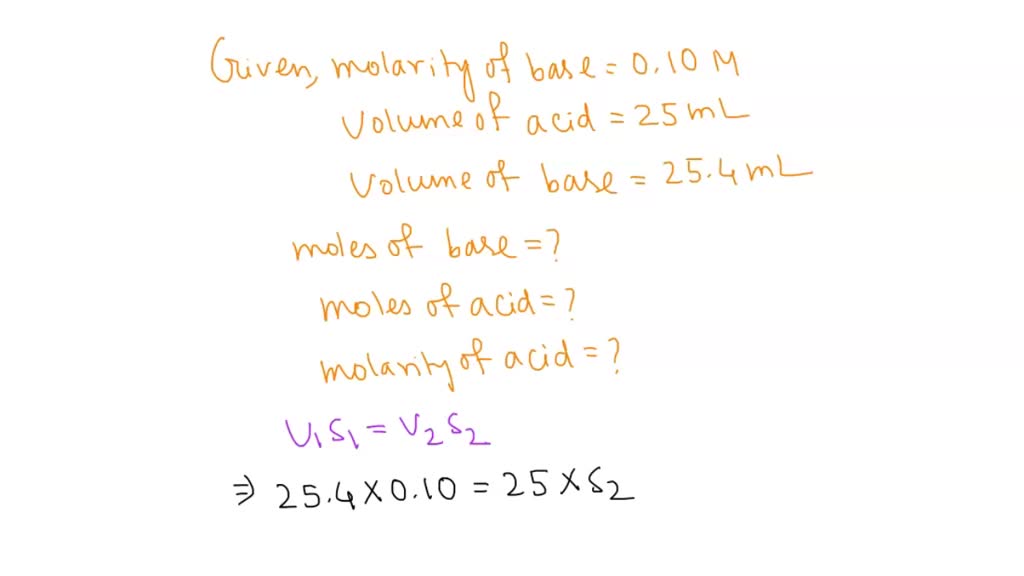 Given, molarity of base = 0.10 M
Volume of acid = 25 mL
Volume of base = 25.4 mL
moles of base = ?
moles of acid = ?
molarity of acid = ?
V₁S₁ = V₂S₂
⇒ 25.4 × 0.10 = 25 × S₂